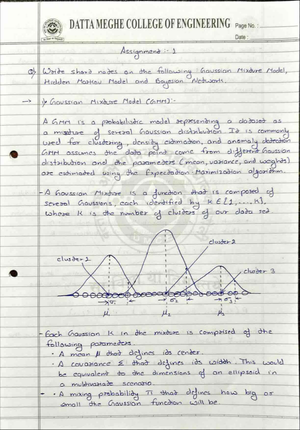 DATTA MEGHE COLLEGE OF ENGINEERING Page No. :
Date :
Assignment :- 1
Q) Write short notes on the following Gaussian Mixture Model,
Hidden Markov Model and Bayesian Network.
→ * Gaussian Mixture Model (GMM) :-
A GMM is a probabilistic model representing a dataset as
a mixture of several Gaussian distribution. It is commonly
used for clustering, density estimation, and anomaly detection
GMM assumes the data point come from different Gaussian
distribution and the parameters (mean, variance, and weights)
are estimated using the Expectation Maximization algorithm.
- A Gaussian Mixture is a function that is composed of
several Gaussians, each identified by K E {1, ...., K},
where K is the number of clusters of our data set
cluster 2
cluster 1
cluster 3
σ1
σ2
σ3
μ1
μ2
μ3
- Each Gaussian K in the mixture is comprised of the
following parameters.
• A mean μ that defines its center.
• A covariance Σ that defines its width. This would
be equivalent to the dimensions of an ellipsoid in
a multivariate scenario.
• A mixing probability Π that defines how big or
small the Gaussian function will be.